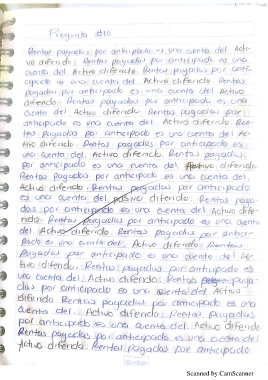 Pregunta #10
Rentas pagadas por anticipado es una cuenta del Acti-
vo diferido. Rentas pagadas por anticipado es una
cuenta del Activo diferido. Rentas pagadas por anti-
cipado es una cuenta del Activo diferido Rentas
pagadas por anticipado es una cuenta del Activo
diferido. Rentas pagadas por anticipado es una
cuenta del Activo diferido Rentas pagadas por
anticipado es una cuenta del Activo diferido Ren-
tas pagadas por anticipado es una cuenta del Ac-
tivo diferido. Rentas pagadas por anticipado es
una cuenta del Activo diferido. Rentas pagadas
por anticipado es una cuenta del Activo diferido
Rentas pagadas por anticipado es una cuenta del
Activo diferido Rentas pagadas por anticipado
es una cuenta del pasivo diferido. Rentas paga-
das por anticipado es una cuenta del Activo dife-
rido. Rentas pagadas por anticipado es una cuenta
del Activo diferido. Rentas pagadas por antici-
pado es una cuenta del Activo diferido Rentas
pagadas por anticipado es una cuenta del Ac-
tivo diferido. Rentas pagadas por anticipado es
una cuenta del Activo diferido. Rentas paga-
das por anticipado es una cuenta del Activo
diferido Rentas pagadas por anticipado es una
cuenta del Activo diferido Rentas pagadas
por anticipado es una cuenta del Activo diferido
Rentas pagadas por anticipado es una cuenta del
Activo diferido Rentas pagadas por anticipado
Scanned by CamScanner